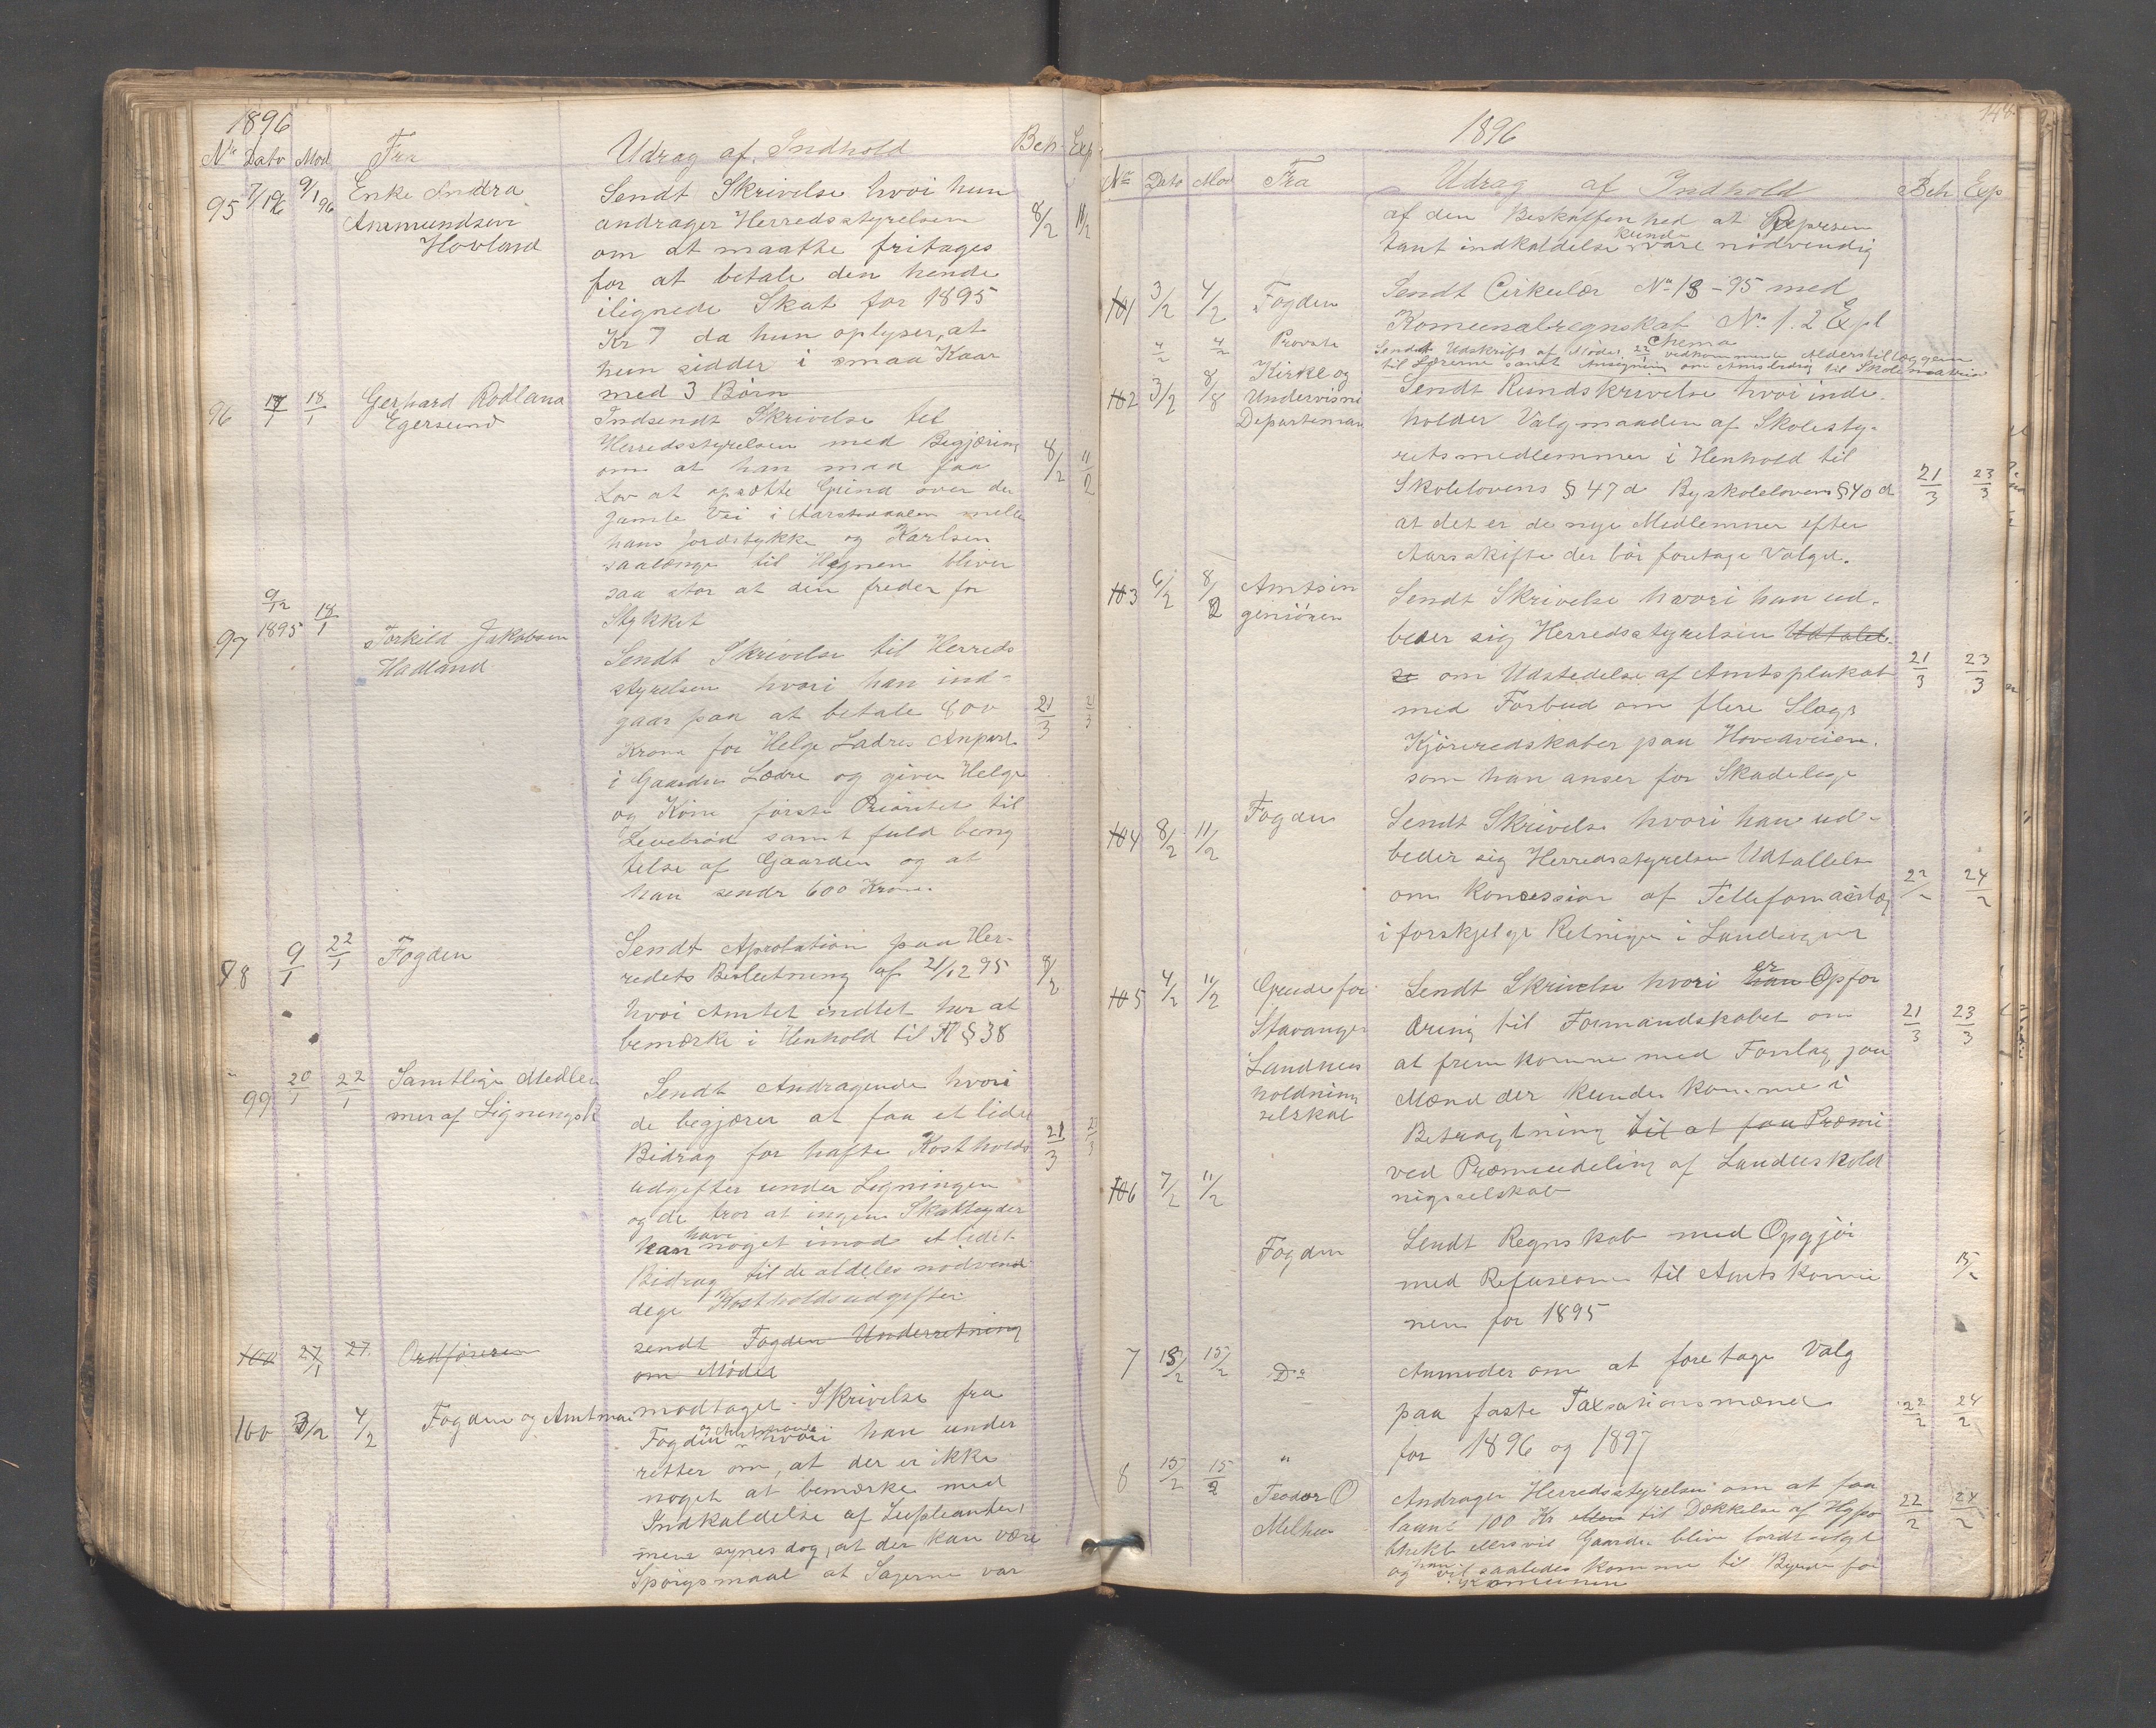 1896
No Dato Mod Fra Udrag af Indhold Beh Exp
95 7/1 96 9/1 96 Enke Andra Sendt Skrivelse hvori hun
Anmundsen andrager Herredsstyrelsen 8/2 11/2
Hovland om at maatte fritages
for at betale den hende
ilignede Skat for 1895
Kr 7 da hun oplyser, at
hun sidder i smaa Kaar
med 3 Børn
96 17/1 18/1 Gerhard Rodland Indsendt Skrivelse til
Egersund Herredsstyrelsen med Begjæring 8/2 11/2
om at han maa faa
Lov at opsætte Grind over den
gamle Vei i Aarstaddalen melle
hans Jordstykke og Karlsen
saalænge til Hegnen bliver
saa stor at den freder for
Stykket
97 9/12 1895 18/1 Torkild Jakobsen Sendt Skrivelse til Herreds
Hadland styrelsen hvori han ind-
gaar paa at betale 800 21/3 21/3
Krone for Helge Ladres Anpart
i Gaarden Lædre og giver Helge
og Kone første Prioritet til
Levebrød samt fuld beny
telse af Gaarden og at
han sendr 600 Krone.
98 9/1 22/1 Fogden Sendt Aprobation paa Her-
redets Beslutning af 21/12 95 8/2
hvori Amtet indtet har at
bemærke i Henhold til Fl § 38
99 20/1 22/1 Samtlige Medlem Sendt Andragende hvori
mer af Ligningsk de begjærer at faa et lidet
Bidrag for hafte Kostholds 21/3 21/3
udgifter under Ligningen
og de tror at ingen Skatteyder
kan have noget imod et lidet
Bidrag til de aldeles nødvend
dege Kostholdsudgifter
100 27/1 27. Ordføreren sendt Fogden Underretning
om Mødet
100 3/2 4/2 Fogden og Amtman modtaget Skrivelse fra
Fogden og Amtmand hvori han under
retter om, at der er ikke
noget at bemærke med
Indkaldelse af Supleanter,
men synes dog, at der kan være
Spørgsmaal at Sagerne var
1896
No Dato Mod Fra Udrag af Indhold Beh Exp
af den Beskaffenhed at Repræsen
tant indkaldelse kunde være nødvendig
101 3/2 4/2 Fogden Sendt Cirkulær No 13-95 med
Komunalregnskab No 1. 2 Expl
Chema
4/2 4/2 Provsten Sendt Udskrift af Møder 22/1 vedkommende Alderstillæggene
til Lærerne samt Ansøgning om Amtsbidrag til
102 3/2 8/8 Kirke og Sendt Rundskrivelse hvori inde.
Undervisni holder Valgmaaden af Skolesty-
Departemen retsmedlemmer i Henhold til
Skolelovens § 47 d Byskolelovens § 40 d 21/3 23/3
at det er de nye Medlemmer efter
Aarsskifte der bør foretage Valget.
103 6/2 8/2 Amtsin Sendt Skrivelse hvori han ud-
geniøren beder sig Herredsstyrelsen Udtalel-
se om Udstedelse af Amtsplakat 21/3 23/3
med Forbud om flere Slags
Kjøreredskaber paa Hovedveien.
som han anser for Skadelege
104 8/2 11/2 Fogden Sendt Skrivelse hvori han ud-
beder sig Herredsstyrelsen Udtallels
om Koncession af Tellefonanlæg 22/2 24/2
i forskjelge Retninge i Landsogner
105 4/2 11/2 Grude for Sendt Skrivelse hvori han er Opfor
Stavanger dring til Formandskabet om 21/3 23/3
Landhus at fremkomme med Forslag paa
holdnings Mænd der kunde komme i
selskab Betragtning til at faa Præmi
ved Præmieudeling af Landhushold
nigsselskab
106 7/2 11/2 Fogden Sendt Regnskab med Opgjør
med Refusionen til Amtskomu 15/2
nen for 1895
7 13/2 15/2 Do Anmoder om at foretage Valg
paa faste Taxsationsmænd 22/2 24/2
for 1896 og 1897
8 15/2 15/2 " Teodor O Andrager Herredsstyrelsen om at faa
Melhus laane 100 Kr ellers til Dækkelse af Hypo 22/2 24/2
thekb ellers vil Gaarden blive bordtsolgt
og han vil saaledes komme til Byrde for
Komunen